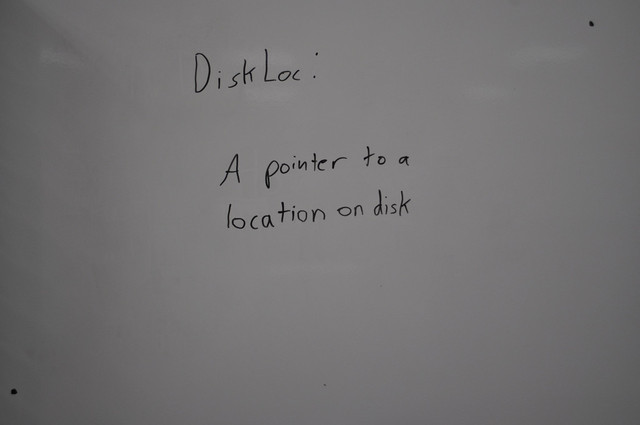 DiskLoc:
A pointer to a
location on disk